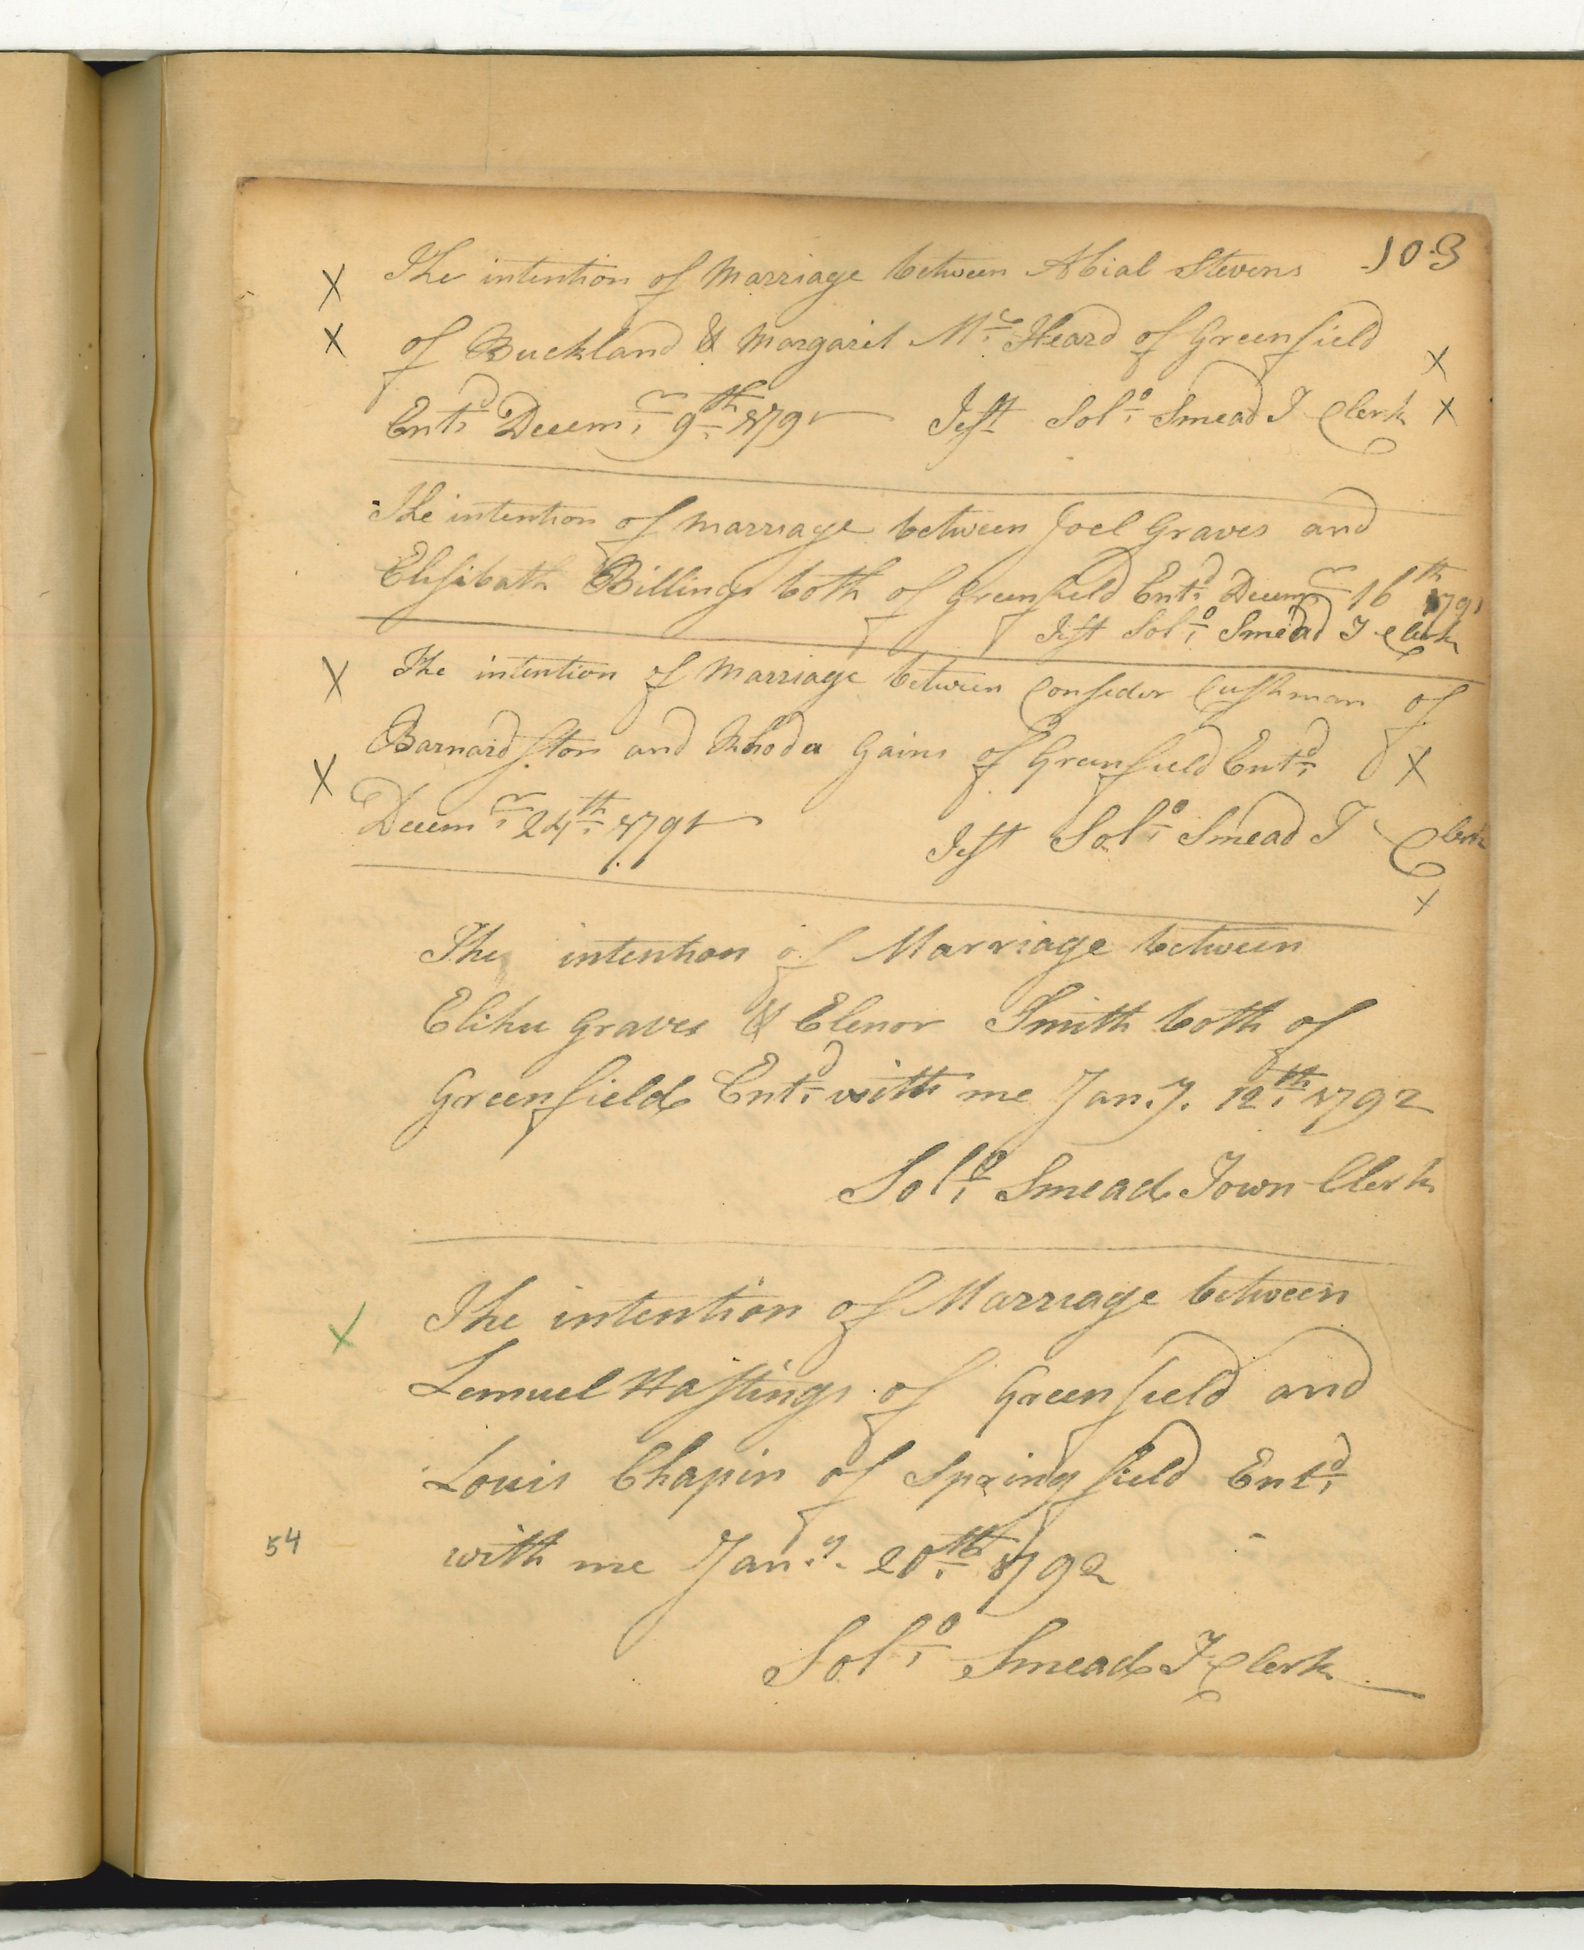 103
The intention of Marriage between Abial Stevens
of Buckland & Margaret Mc. Heard of Greenfield
Entd. Decemr. 9th. 1791 Test Solo. Smead T Clerk
The intention of marriage between Joel Graves and
Elisibath Billings both of Greenfield Entd. Decemr 16th 1791
Test Solo. Smead T Clerk
The intention of Marriage between Consider Cushman of
Barnardston and Rhoda Gains of Greenfield Entd.
Decemr. 24th. 1791 Test Solo. Smead T Clerk
The intention of Marriage between
Elihu Graves & Elenor Smith both of
Greenfield Entd. with me Jan.y. 12th. 1792
Solo. Smead Town Clerk
The intention of Marriage between
Lemuel Hastings of Greenfield and
Louis Chapin of Springfield Entd.
54
with me Jan.y. 20th. 1792
Solo. Smead T Clerk